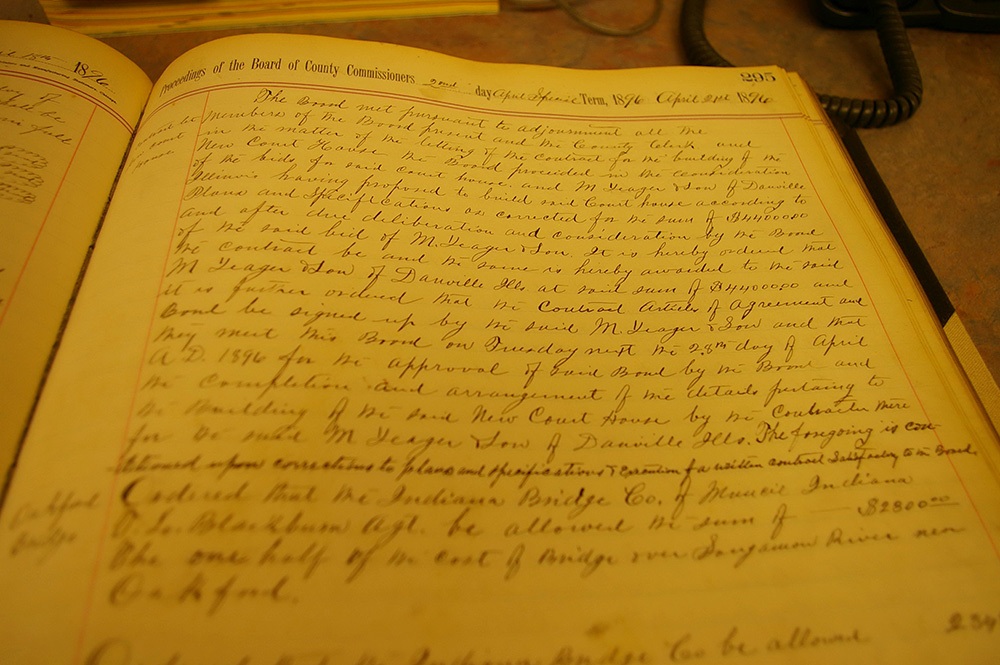 1896
Proceedings of the Board of County Commissioners 2nd day April Special Term, 1896 April 21st 1896
295
The Board met pursuant to adjournment all the
Members of the Board present and the County Clerk and
in the matter of the letting of the contract for the building of the
New Court House the Board proceeded in the consideration
of the bids for said Court house. and M Yeager & Son of Danville
Illinois having proposed to build said Court house according to
Plans and Specifications as corrected for the sum of $44000.00
and after due deliberation and consideration by the Board
of the said bid of M. Yeager & Son. It is hereby ordered that
the contract be and the same is hereby awarded to the said
M Yeager & Son of Danville Ills at said sum of $44000.00 and
it is further ordered that the Contract Articles of Agreement and
Bond be signed up by the said M. Yeager & Son and that
they meet this Board on Tuesday next the 28th day of April
A.D. 1896 for the approval of said Bond by the Board and
the completion and arrangement of the details pertaining to
the building of the said New Court House by the Contractor there
for the said M Yeager & Son of Danville Ills. The foregoing is con-
ditioned upon corrections to plans and specifications & execution of a written contract satisfactory to the Board.
Oakford
Bridge
Ordered that the Indiana Bridge Co. of Muncie Indiana
Blackburn Agt. be allowed the sum of — $2800.00
the one half of the cost of Bridge over Sangamon River near
Oakford.
Indiana Bridge Co be allowed 234